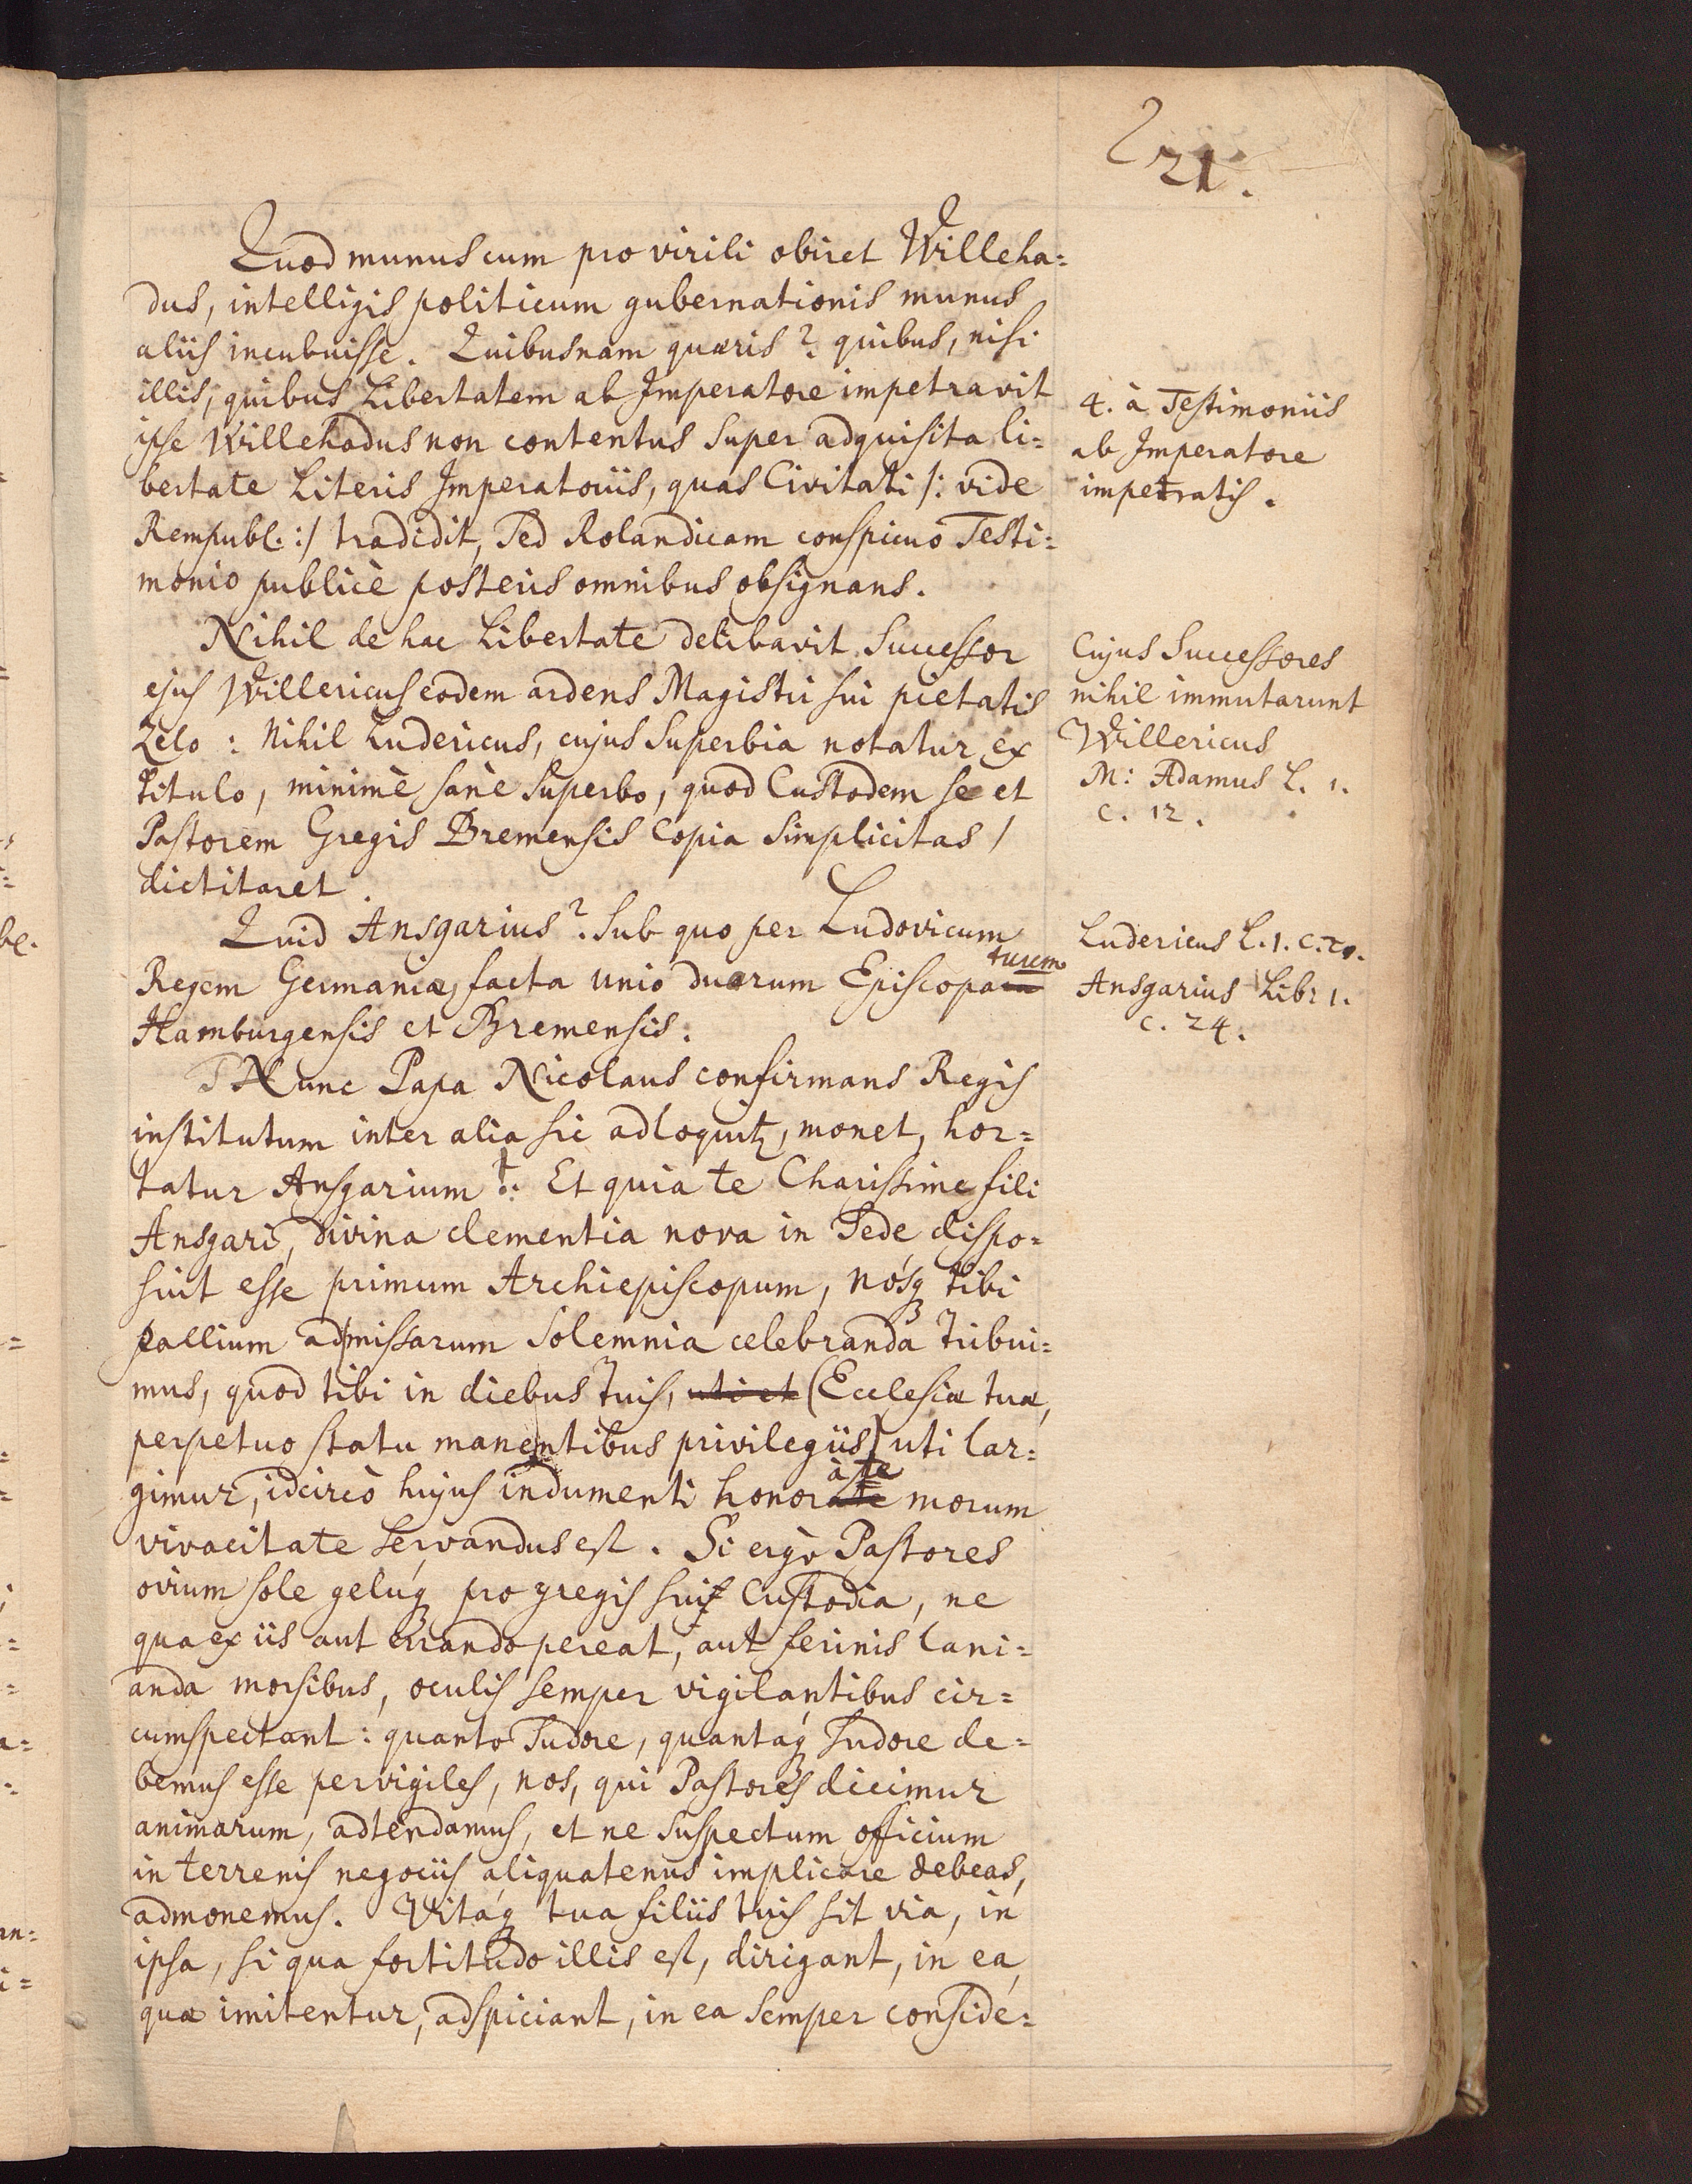 21.
Quod munus cum pro virili obiret Willeha=
dus, intelligis politicum gubernationis munus
aliis incubuisse. Quibusnam quæris? quibus, nisi
illis, quibus Libertatem ab Imperatore impetravit
ipse Willehadus non contentus super adquisita li=
bertate Literis Imperatoriis, quas Civitati /: vide
Rempubl. :/ tradidit, Sed Rolandicam conspicuo Testi=
monio publicè posteris omnibus obsignans.
4. à Testimoniis
ab Imperatore
impetratis.
Nihil de hac Libertate delibavit Successor
ejus Willericus eodem ardens Magistri sui pietatis
Zelo: Nihil Ludericus, cujus Superbia notatur ex
titulo, minimè sanè Superbo, quod Custodem se et
Pastorem Gregis Bremensis Copia Simplicitas /
dictitaret.
Cujus Successores
nihil immutarunt
Willericus
M: Adamus L. 1.
c. 12.
Quid Ansgarius? Sub quo per Ludovicum
Regem Germaniæ, facta unio duorum Episcopatuum
Hamburgensis et Bremensis.
Ludericus L. 1. c. 20.
Ansgarius Libr 1.
c. 24.
Nunc Papa Nicolaus confirmans Regis
institutum inter alia sic adloquitz, monet, hor=
tatur Ansgarium: Et quia te Charissime fili
Ansgari, divina clementia nova in Sede dispo=
suit esse primum Archiepiscopum, nósq tibi
pallium ad missarum Solemnia celebranda tribui=
mus, quod tibi in diebus tuis, uti et (Ecclesiæ tuæ,
perpetuo statu manentibus privilegiis) uti lar=
gimur, idcircò hujus indumenti honor à te morum
vivacitate servandus est. Si ergò Pastores
ovium sole gelúq pro gregis sui Custodia, ne
qua ex iis aut errando pereat, aut ferinis lani=
anda morsibus, oculis semper vigilantibus cir=
cumspectant: quanto Sudore, quantáq Sudore de=
bemus esse pervigiles, nos, qui Pastores dicimur
animarum, adtendamus, et ne Suspectum officium
in terrenis negociis aliquatenus implicare debeas,
admonemus. Vitáq tua filiis tuis sit via, in
ipsa, si qua fortitudo illis est, dirigant, in ea,
quæ imitentur, adspiciant, in ea semper conside=